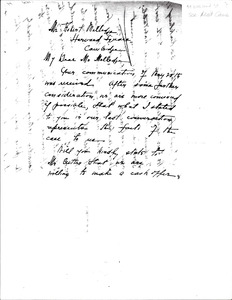 Mr. Robert
Harvard Square
Cambridge
My Dear Mr.
Your communication of May 20/15
was received. After some further
consideration, we are more convinced
if possible, that what I stated
to you in our last conversation
represents the facts of the
case to us.
Will you kindly state to
Mr. that we are
willing to make a cash offer,